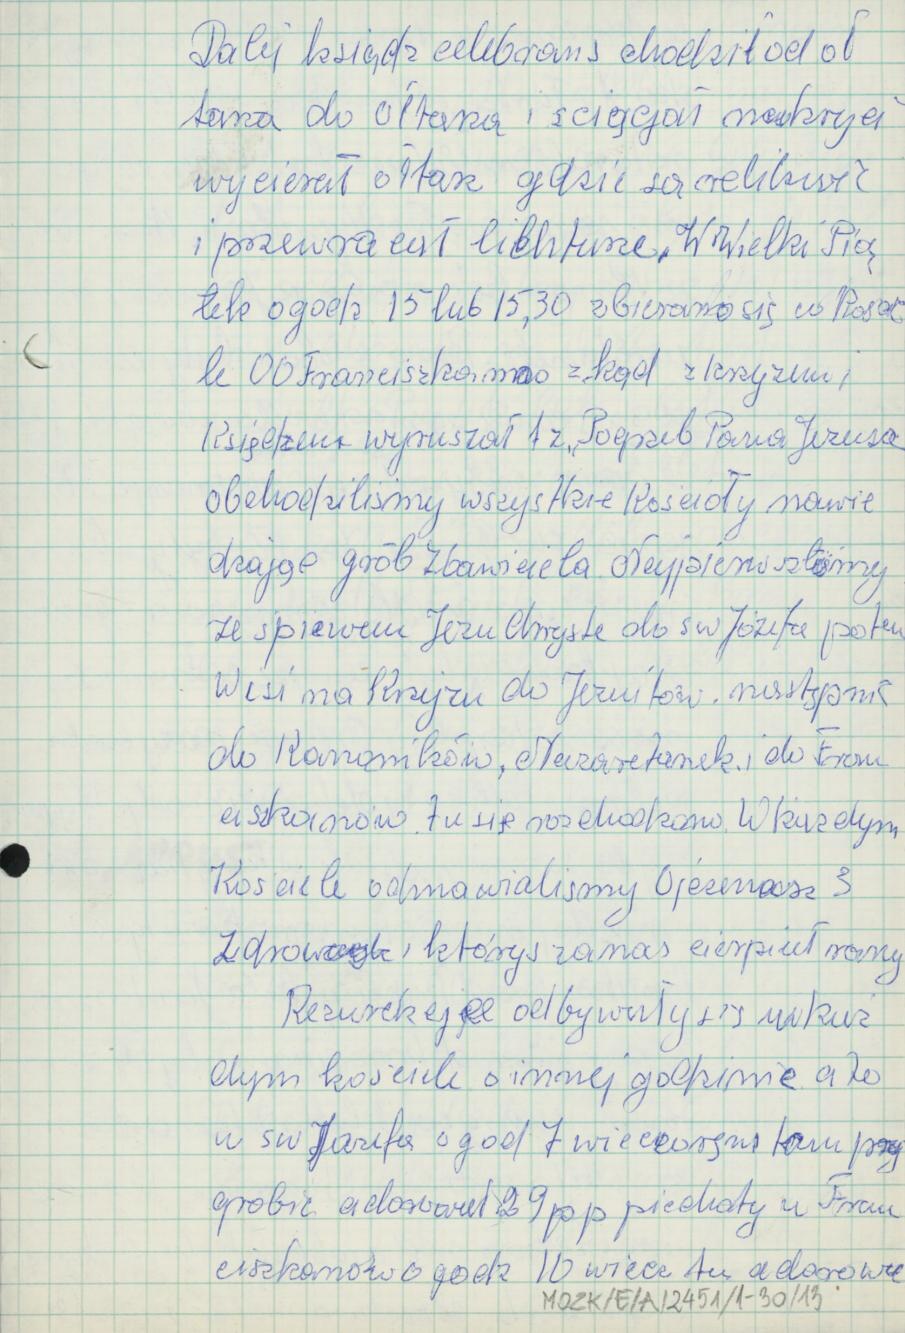 Dalej ksiądz celebrans chodził od oł
tarza do ołtarza i ściągał nakrycia
wycierał ołtarz gdzie są relikwie
i przewracał lichtarze. W Wielki Pią
tek o godz 15 lub 15,30 zbierano się w Kośció
le OO Franciszkanów zkąd z krzyżem i
Księdzem wyruszał tz, Pogrzeb Pana Jezusa
obchodziliśmy wszystkie Kościoły nawie
dzając grób Zbawiciela. Najpierw szliśmy
ze śpiewem Jezu Chryste do św Józefa potem
Wisi na Krzyżu do Jezuitów. następnie
do Kanoników, Nazaretanek i do Fran
ciszkanów. Tu się rozchodzono. W każdym
Kościele odmawialismy Ojczenasz 3
Zdrowaśki i któryś za nas cierpiał rany
Rezurekcje odbywały się w każ
dym kościele o innej godzinie a to
u św Józefa o god 7 wieczorem tam przy
grobie adorował 29 pp piechoty u Fran
ciszkanów o godz 10 wiecz tu adorowa
MOZK/E/A/2451/1-30/13